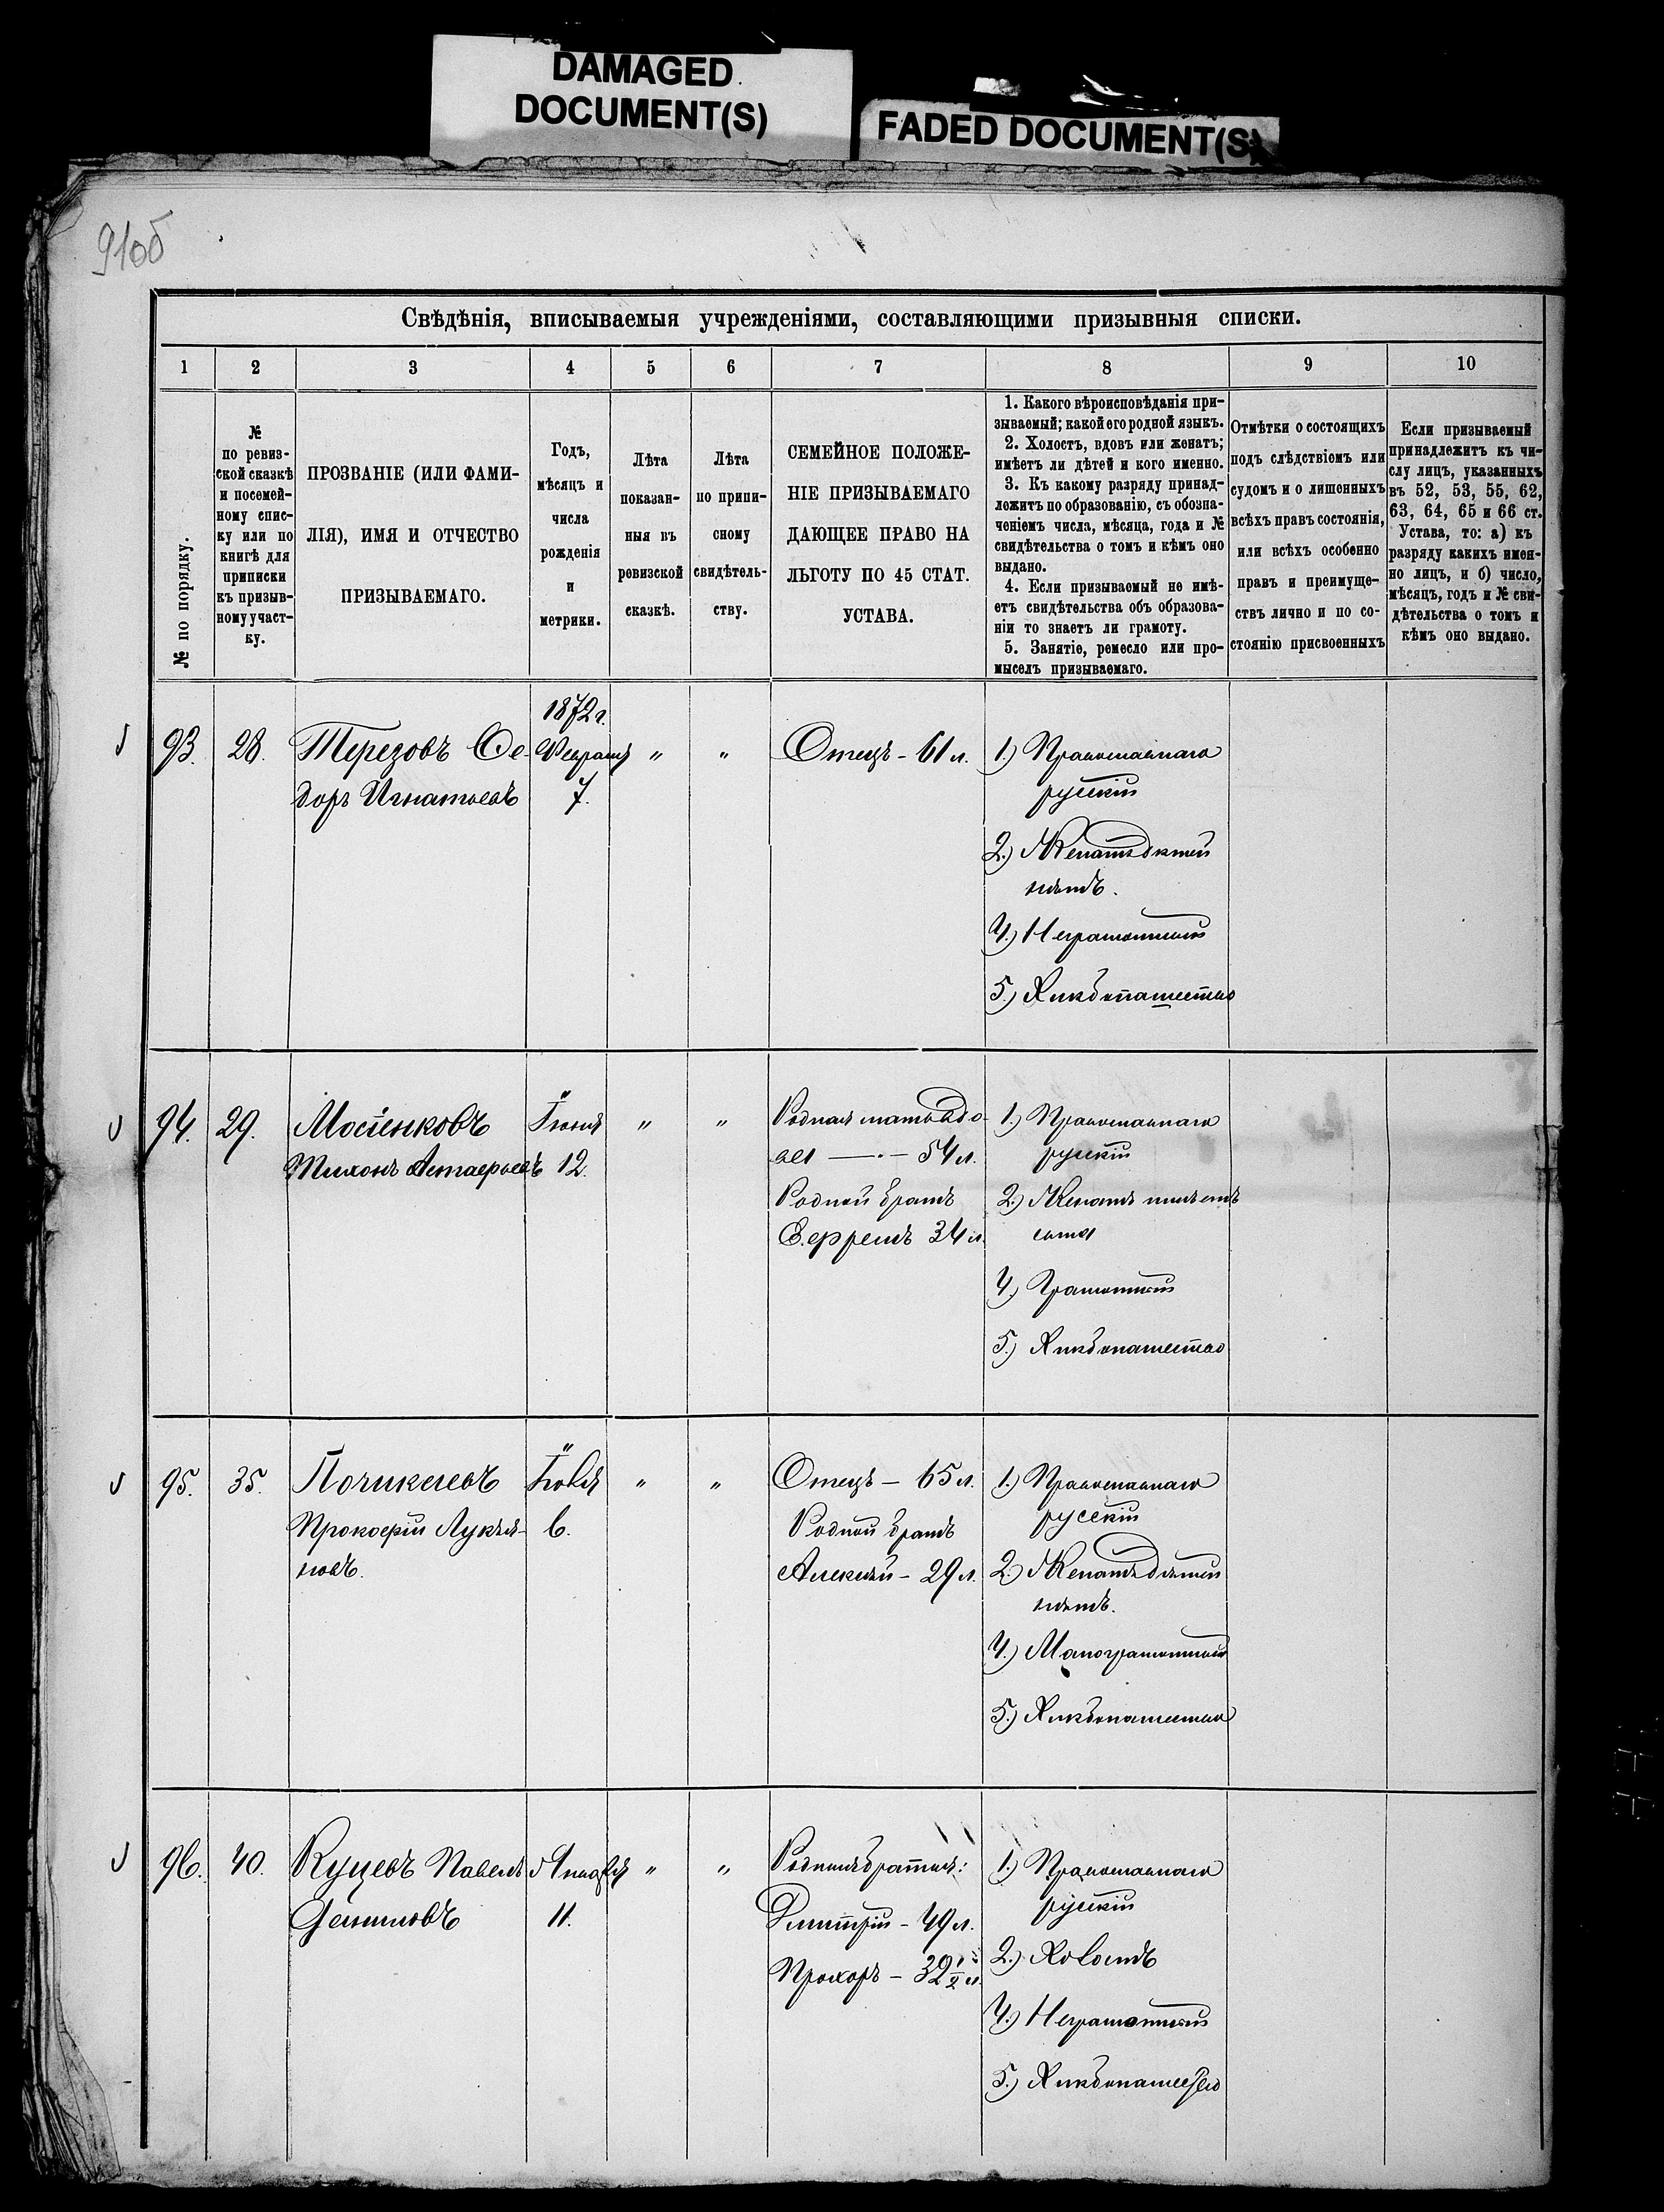 DAMAGED
DOCUMENT(S)
FADED DOCUMENT(S)
91об
Свѣдѣнія, вписываемыя учрежденіями, составляющими призывныя списки.
1 2 3 4 5 6 7 8 9 10
№ по порядку.
№
по ревиз-
ской сказкѣ
и посемей-
ному спис-
ку или по
книгѣ для
приписки
къ призыв-
ному участ-
ку.
ПРОЗВАНІЕ (ИЛИ ФАМИ-
ЛІЯ), ИМЯ И ОТЧЕСТВО
ПРИЗЫВАЕМАГО.
Годъ,
мѣсяцъ и
числа
рожденія
и
метрики.
Лѣта
показан-
ныя въ
ревизской
сказкѣ.
Лѣта
по припи-
сному
свидѣтель-
ству.
СЕМЕЙНОЕ ПОЛОЖЕ-
НІЕ ПРИЗЫВАЕМАГО
ДАЮЩЕЕ ПРАВО НА
ЛЬГОТУ ПО 45 СТАТ.
УСТАВА.
1. Какого вѣроисповѣданія при-
зываемый; какой его родной языкъ.
2. Холостъ, вдовъ или женатъ;
имѣетъ ли дѣтей и кого именно.
3. Къ какому разряду принад-
лежитъ по образованію, съ обозна-
ченіемъ числа, мѣсяца, года и №
свидѣтельства о томъ и кѣмъ оно
выдано.
4. Если призываемый не имѣ-
етъ свидѣтельства объ образова-
ніи то знаетъ ли грамоту.
5. Занятіе, ремесло или про-
мыселъ призываемаго.
Отмѣтки о состоящихъ
подъ слѣдствіемъ или
судомъ и о лишенныхъ
всѣхъ правъ состоянія,
или всѣхъ особенно
правъ и преимуще-
ствъ лично и по со-
стоянію присвоенныхъ
Если призываемый
принадлежитъ къ чи-
слу лицъ, указанныхъ
въ 52, 53, 55, 62,
63, 64, 65 и 66 ст.
Устава, то: а) къ
разряду какихъ имен-
но лицъ, и б) число,
мѣсяцъ, годъ и № сви-
дѣтельства о томъ и
кѣмъ оно выдано.
93. 28. Терезовъ Ѳе-
доръ Игнатьевъ
1872 г.
Февраля
7.
" "
Отецъ - 61 л.
1.) Православнаго
русскій
2.) Женатъ дѣтей
нѣтъ.
4.) Неграмотный
5.) Хлѣбопашество
94. 29. Мосіенковъ
Тихонъ Астафьевъ
"
Іюня
12.
" "
Родная мать вдо-
ва — 54 л.
Родной братъ
Ефремъ 34 л.
1.) Православнаго
русскій
2.) Женатъ имѣетъ
сына
4.) Грамотный
5.) Хлѣбопашество
95. 35. Почикаевъ
Прокофій Лукья-
новъ.
"
Іюля
6.
" "
Отецъ - 65 л.
Родной братъ
Алексѣй - 29 л.
1.) Православнаго
русскій
2.) Женатъ дѣтей
нѣтъ.
4.) Малограмотный
5.) Хлѣбопашество
96. 40. Куцевъ Павелъ
Даниловъ
Января
11.
" "
Родныя братья:
Дмитрій - 49 л.
Прохоръ - 32 1/2 л.
1.) Православнаго
русскій
2.) Холостъ
4.) Неграмотный
5.) Хлѣбопашество